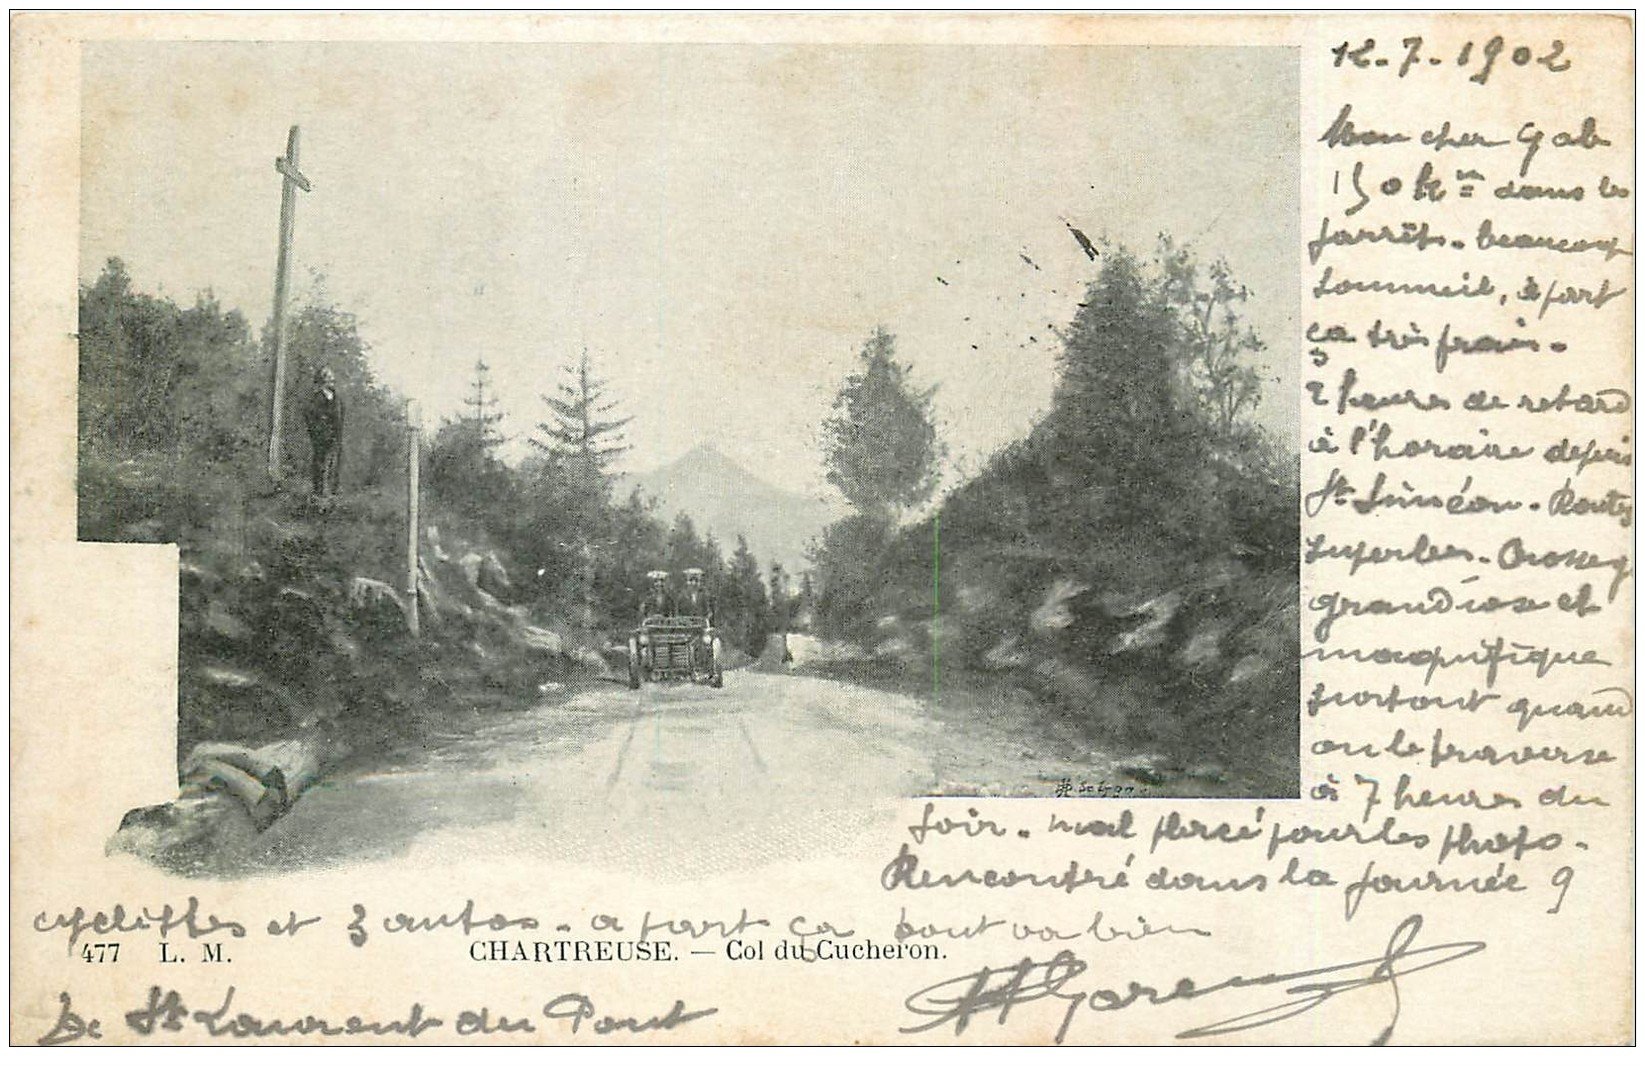 12-7-1902
Mon cher Gab
150 Km dans les
jarrêts - beaucoup
sommeil, à part
ça très frais -
2 heures de retard
à l'horaire depuis
St Siméon - Routes
superbes -
grandiose et
magnifique
surtout quand
on le traverse
à 7 heures du
soir - mal placé pour les photos -
Rencontré dans la journée 9
cyclistes et 3 autos - à part ça tout va bien
477 L. M. CHARTREUSE. — Col du Cucheron.
De St Laurent du Pont